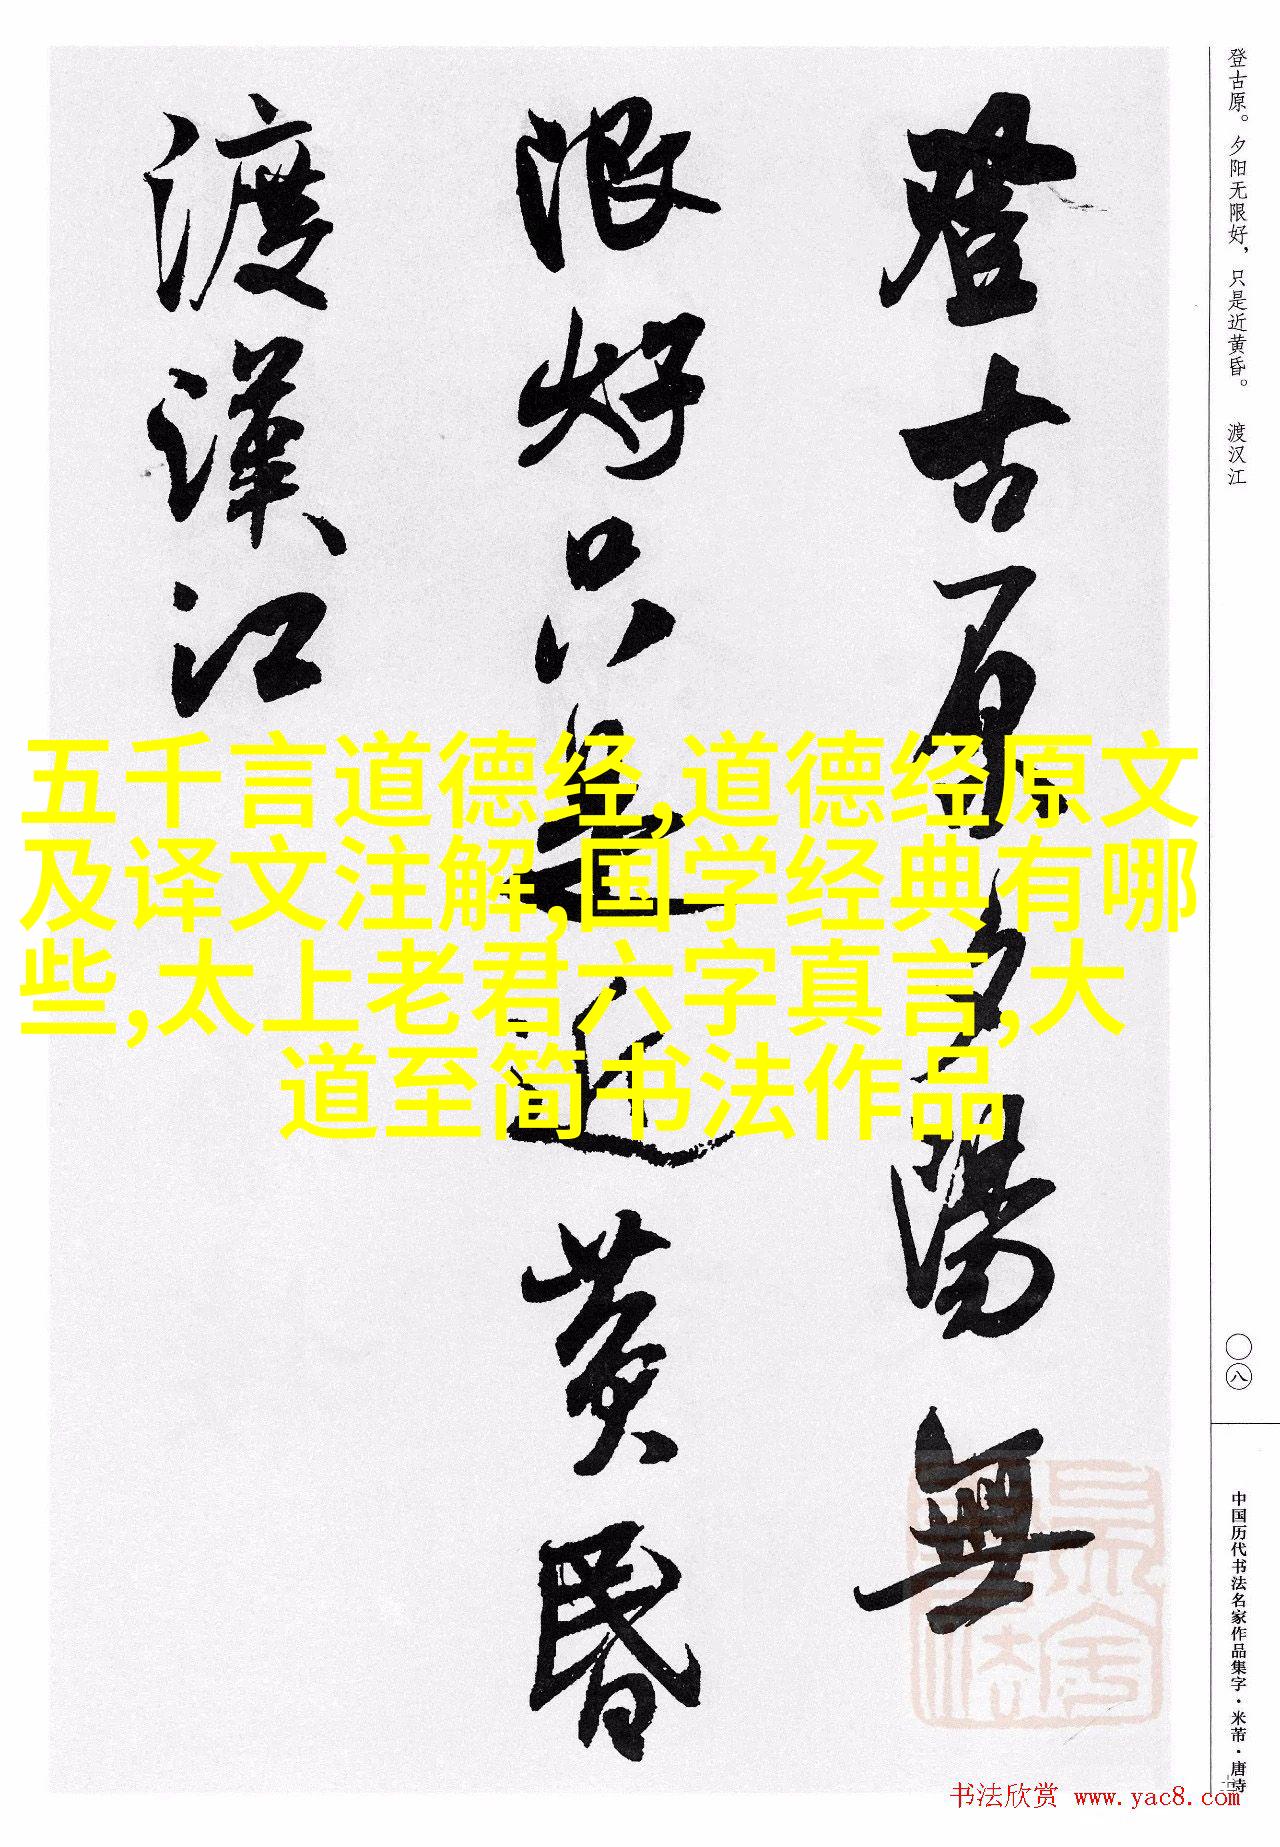 登古原。夕阳无限好，只是近黄昏。 渡汉江
登古原夕陽無
限好只是近黄昏
渡漢江
五千言道德经,道德经原文
及译文注解,国学经典有哪
些,太上老君六字真言,大
道至简书法作品
〇八
中国历代书法名家作品集字·米芾·唐诗
书法欣赏 www.yac8.com